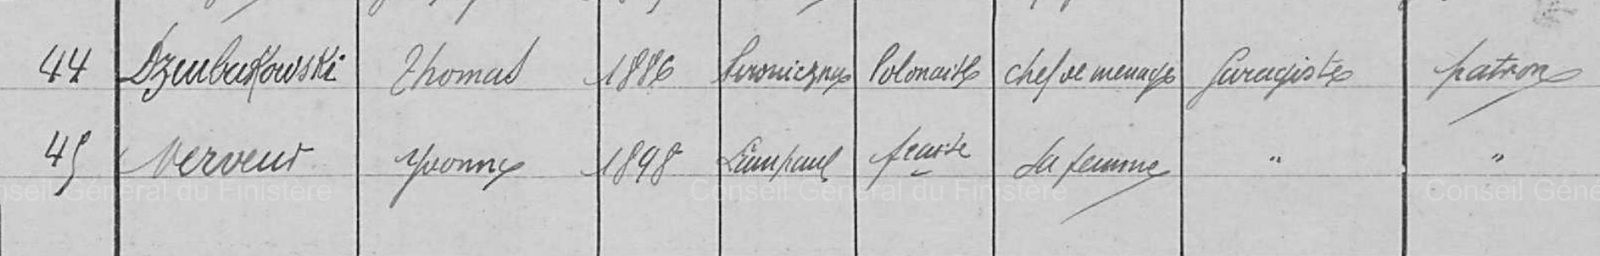 44 Dzenbakowski Thomas 1886 Polonaise chef de ménage Garagiste patron
45 Merveur Yvonne 1898 Lampaul fraise Sa femme " "
Conseil Général du Finistère Conseil Général du Finistère Conseil Géné